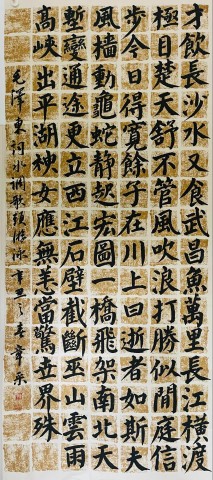 才飲長沙水又食武昌魚萬里長江橫渡
極目楚天舒不管風吹浪打勝似閒庭信
步今日得寬餘子在川上曰逝者如斯夫
風檣動龜蛇靜起宏圖一橋飛架南北天
塹變通途更立西江石壁截斷巫山雲雨
高峽出平湖神女應無恙當驚世界殊
毛澤東詞水調歌頭游泳辛丑之春